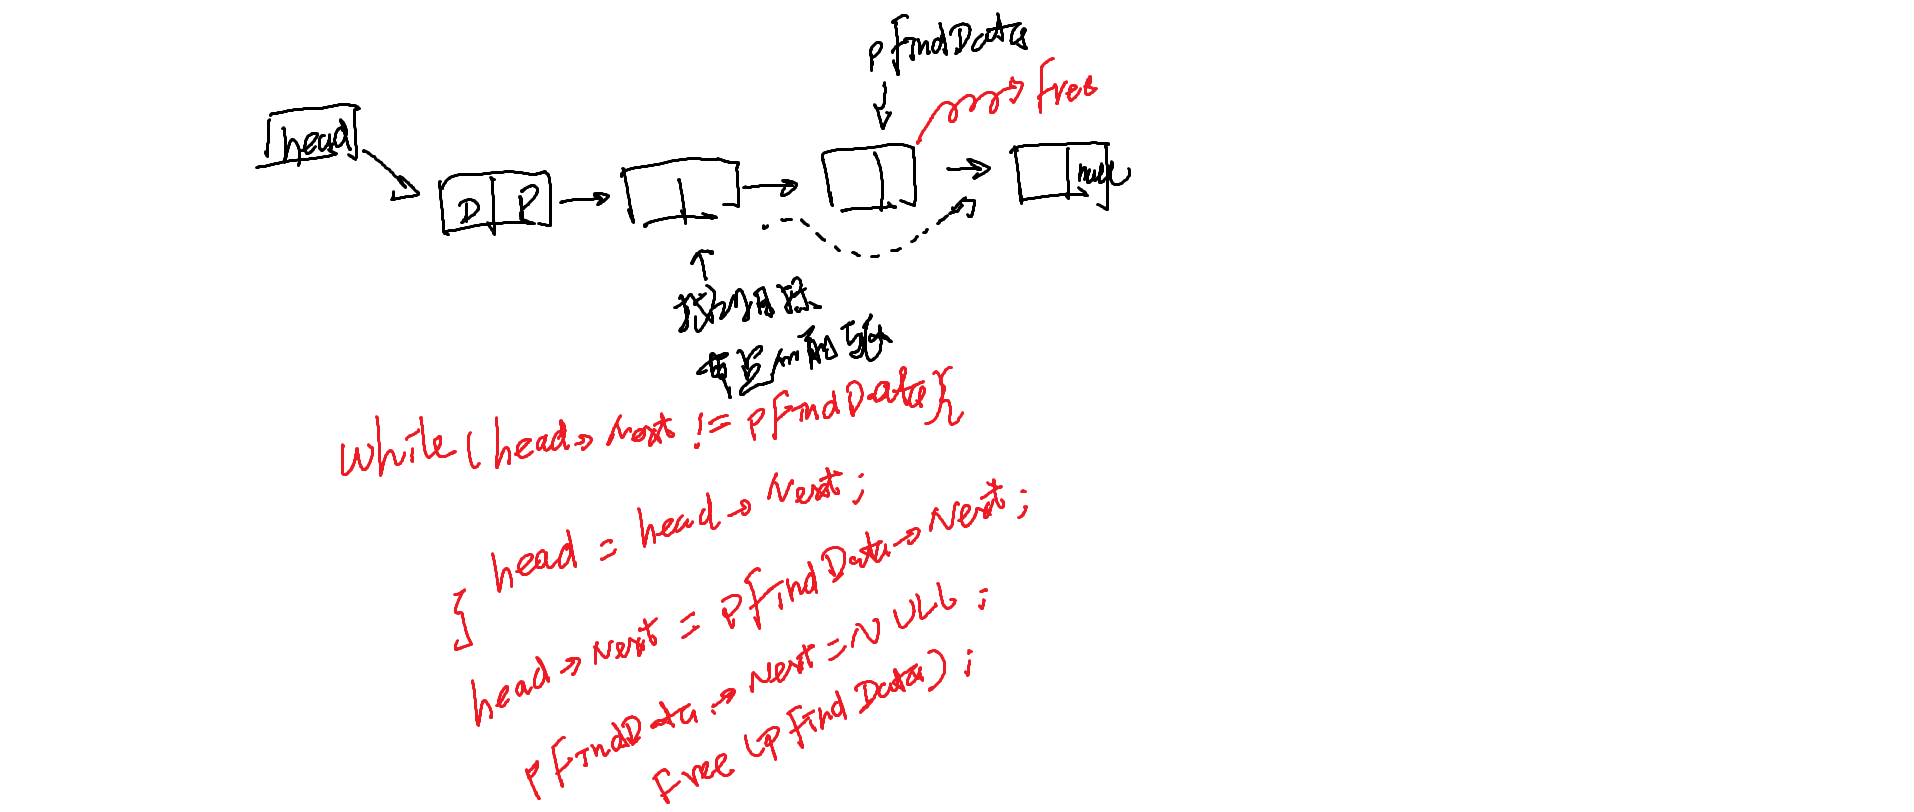 pFindData
free
head
D P
null
找到目标
节点的前驱
while(head->Next != pFindData){
head = head->Next;
}
head->Next = pFindData->Next;
pFindData->Next=NULL;
free(pFindData);